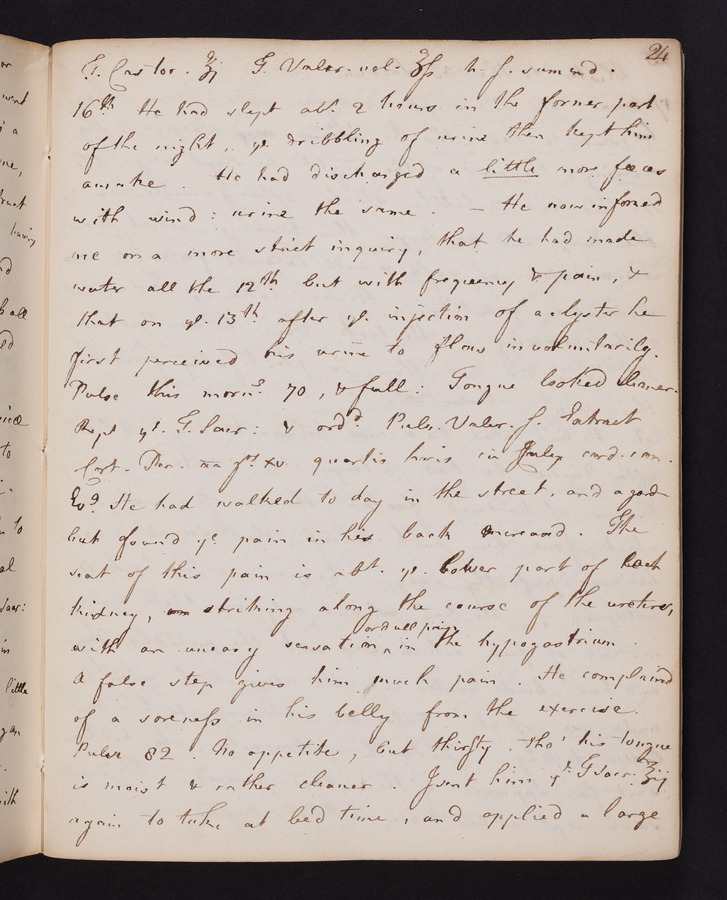 24
T. Castor. ʒj T. Valer. vol. ʒſs h. s. sumend.
16th He had slept abt. 2 hours in the former part
of the night, ye dribbling of urine then kept him
awake. He had discharged a little more fæces
with wind: urine the same. — He now informed
me on a more strict inquiry, that he had made
water all the 12th but with frequency & pain, &
that on ye. 13th after ye. injection of a clyster he
first perceived his urine to flow involuntarily.
Pulse this morng 70, & full: Tongue looked cleaner.
Rept yt. T. Sacr: & ordd Pulv. Valer. s. Extract
Cort. Per. aa gr. xv quartis horis in Julep card. com.
Evg He had walked to day in the street, and a garden
but found ye pain in his back increasd. The
seat of this pain is abt. ye. lower part of each
kidney, striking along the course of the ureters,
with an uneasy sensation in the hypogastrium.
or dull pain
A false step gives him much pain. He complaind
of a soreness in his belly from the exercise.
Pulse 82. No appetite, but thirsty, tho' his tongue
is moist & rather cleaner. I sent him yt T Sacr. ʒij
again to take at bed time, and applied a large